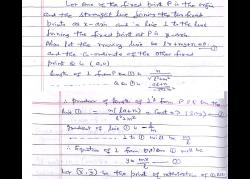 Let one of the fixed point P is the origin
and the straight line joining the two fixed
points as x-axis and a line ⊥ to the line
joining the fixed point P is y-axis.
Also let the moving line be lx+my+n=0
and the co-ordinate of the other fixed
point Q is (a,0)
length of ⊥ from P on ① is n/√(l²+m²)
Q on ① =
∴ product of length of ⊥s from P & Q on the
line ① = n(la+n)/(l²+m²) = const
gradient of line ① is -l/m
⊥ to ① will be m/l
∴ Equation of ⊥ from P on ① will be
y = mx/l
Let be the point of intersection of